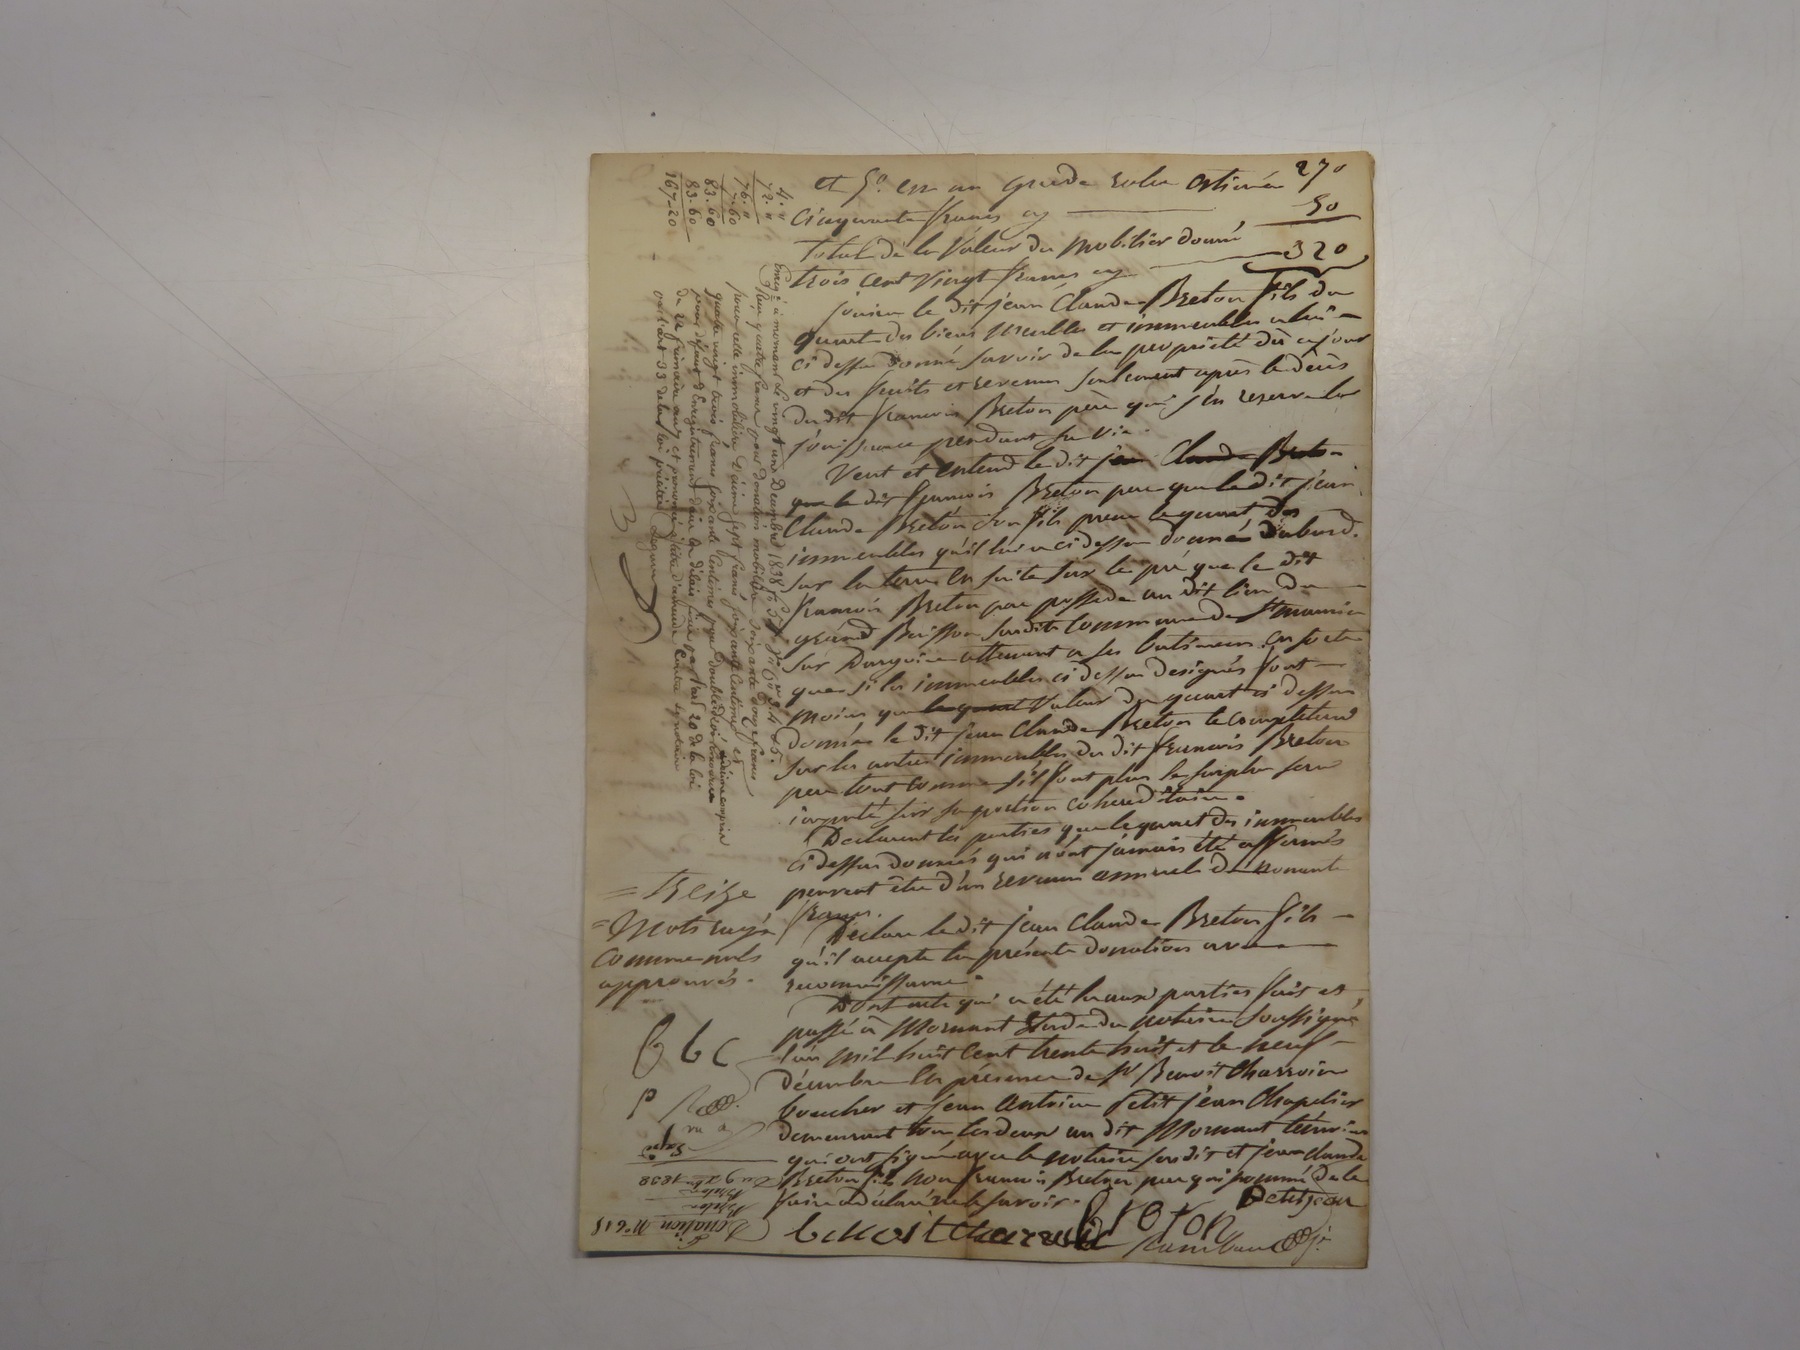 et 5º. en un garde robe estimée 270
Cinquante francs cy 50
total de la Valeur du Mobilier donné
trois cent Vingt francs cy 320
jouira le dit jean Claude Breton fils du
quart des biens Meubles et immeubles a lui
ci dessus donné savoir de la propriété dès ce jour
et des fruits et revenus seulement après le décès
du dit françois Breton père qui s'en reserve la
jouissance pendant sa vie.
Veut et entend le dit jean Claude Breton
que le dit françois Breton pere que le dit jean
Claude Breton son fils prene le quart des
immeubles qu'il lui a ci dessus donné d'abord
sur la terre en suite sur le pré que le dit
françois Breton pere possede au dit lieu du
grand Buisson susdite Commune de St maurice
sur Dargoire attenant a ses batimens, en sorte
que si les immeubles ci dessus designés sont
moins que le quart Valeur du quart ci dessus
donnée le dit jean Claude Breton le completera
sur les autres immeubles du dit françois Breton
pere tout comme s'il sont plus le surplus sera
imputé sur sa portion cohereditaire.
Declarent les parties que le quart des immeubles
ci dessus donnés qui n'ont jamais été affermés
peuvent être d'un revenu annuel de nonante
francs.
Declare le dit jean Claude Breton fils
qu'il accepte la présente donation avec
reconnaissance
Dont acte qui a été lu aux parties fait et
passé à Mornant Etude du notaire soussigné
l'an mil huit cent trente huit et le neuf
décembre En présence de Sr Benoit Charvoin
boucher et jean Antoine Petit jean Chapelier
demeurant tous les deux au dit Mornant temoins
qui ont signé avec le notaire susdit et jean claude
Breton fils non françois Breton pere qui sommé de le
faire a déclaré ne le savoir.
Petitjean
benoit charvoin Broton
= Treize
= Mots rayés
comme nuls
approuvés.
B b c
P
4. "
72. "
76. "
7. 60
83. 60
83. 60
167-20
Enreg. à mornant Le vingt un Décembre 1838
Reçu quatre francs pour donation mobilière soixante douze francs
pour celle immobilière Décime sept francs soixante Centimes et
quatre vingt trois francs soixante Centimes pour double droit décime compris
pour défaut d'Enregistrement dans le délai fixé par l'art 20 de la loi
de 22 frimaire an 7 et prononcé à titre d'amende Contre le notaire
par l'art 33 de la loi précitée
Donation Nº 615
Breton
Breton
Du 9 Xbre 1838